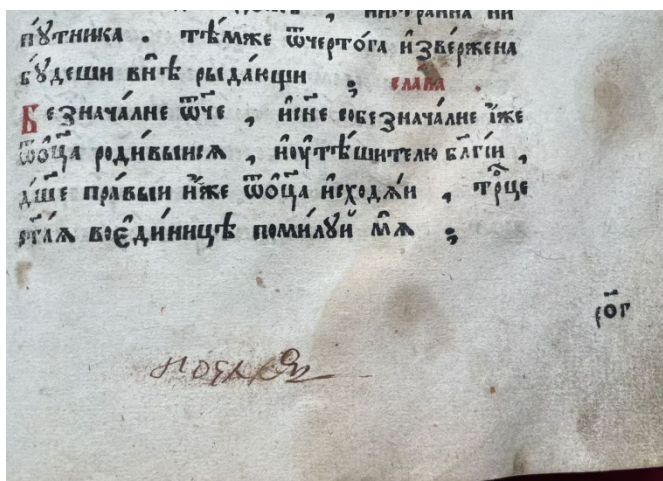 пꙋ́тника . тѣ́мже ѿчерто́га и҆зве́ржена
бꙋ́деши внѣ̀ рыда́ющи ; сла́ва .
Безнача́лне ѿч҃е , и҆сн҃е собезнача́лне и҆́же
ѿо҆ц҃а роди́выися , ноу҆тѣ́шителю бл҃гіи ,
дш҃е пра́выи и҆́же ѿо҆ц҃а и҆сходѧ́и , трⷪ҇це
ст҃а́ѧ воє҆ди́ницѣ поми́лꙋй мѧ̀ ;